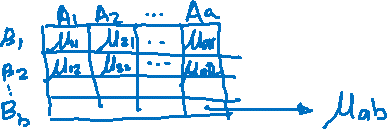 A₁ A₂ ... Aₐ
B₁ μ₁₁ μ₂₁ ... μₐ₁
B₂ μ₁₂ μ₂₂ ... μₐ₂
⋮
B_b μab